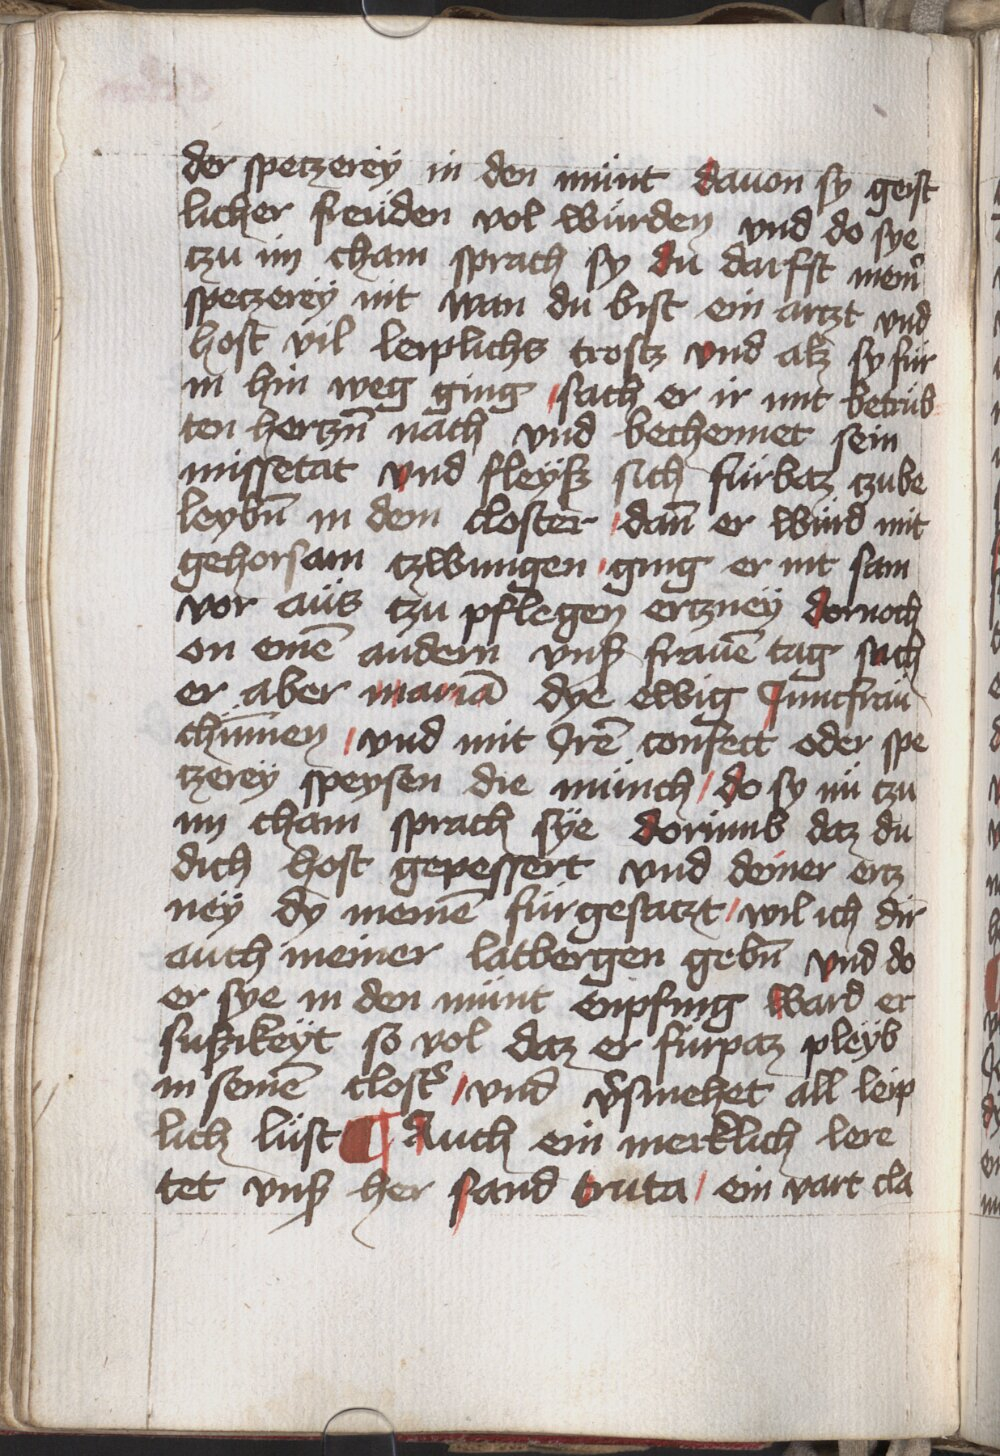 der spetzereÿ in den münt dauon sy geist
licher freüden vol würden vnd do sye
tzu im cham sprach sy du darfst mein̄
spetzereÿ nit wan du bist ein artzt vnd
host vil leiplichs trostz vnd alz sy für
in hin weg ging / sach er ir mit betrüb
ten hertzn̄ nach vnd bechennet sein
missetat vnd fleyß sich fürbaz tzube
leybn̄ in dem closter / dan̄ er würd mit
gehorsam tzwungen / ging er nit sam
vor aüs tzu pflegen ertzneÿ dornoch
on einē andern vnß frauē tag sach
er aber mariā dye ewig Junckfraü
chūmen / vnd mit Jrē confect oder spe
tzereÿ speysen die münch / do sy nü tzu
im cham sprach sÿe dorümb daz du
dich host gepessert vnd deiner ertz
neÿ dy meinē für gesatzt / wil ich dir
auch meiner latbergen gebn̄ vnd do
er sye in den münt enpfing ward er
sußikeyt so vol daz er fürpaz pleyb
in seinē clost̉ / vnd v̉smehet all leip
lich lüst ¶ Auch ein mercklich lere
tet vnß her sand truta / ein vart cla